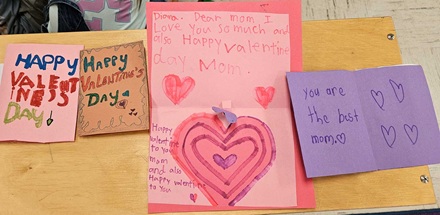 HAPPY
VALENT
INESS
DAY
Happy
VALENTINE'S
DAY
Diana. Dear mom I
Love you so much and
also Happy valentine
day Mom.
Happy
valentine
to you
mom
and also
Happy valentine
to you
you are
the best
mom